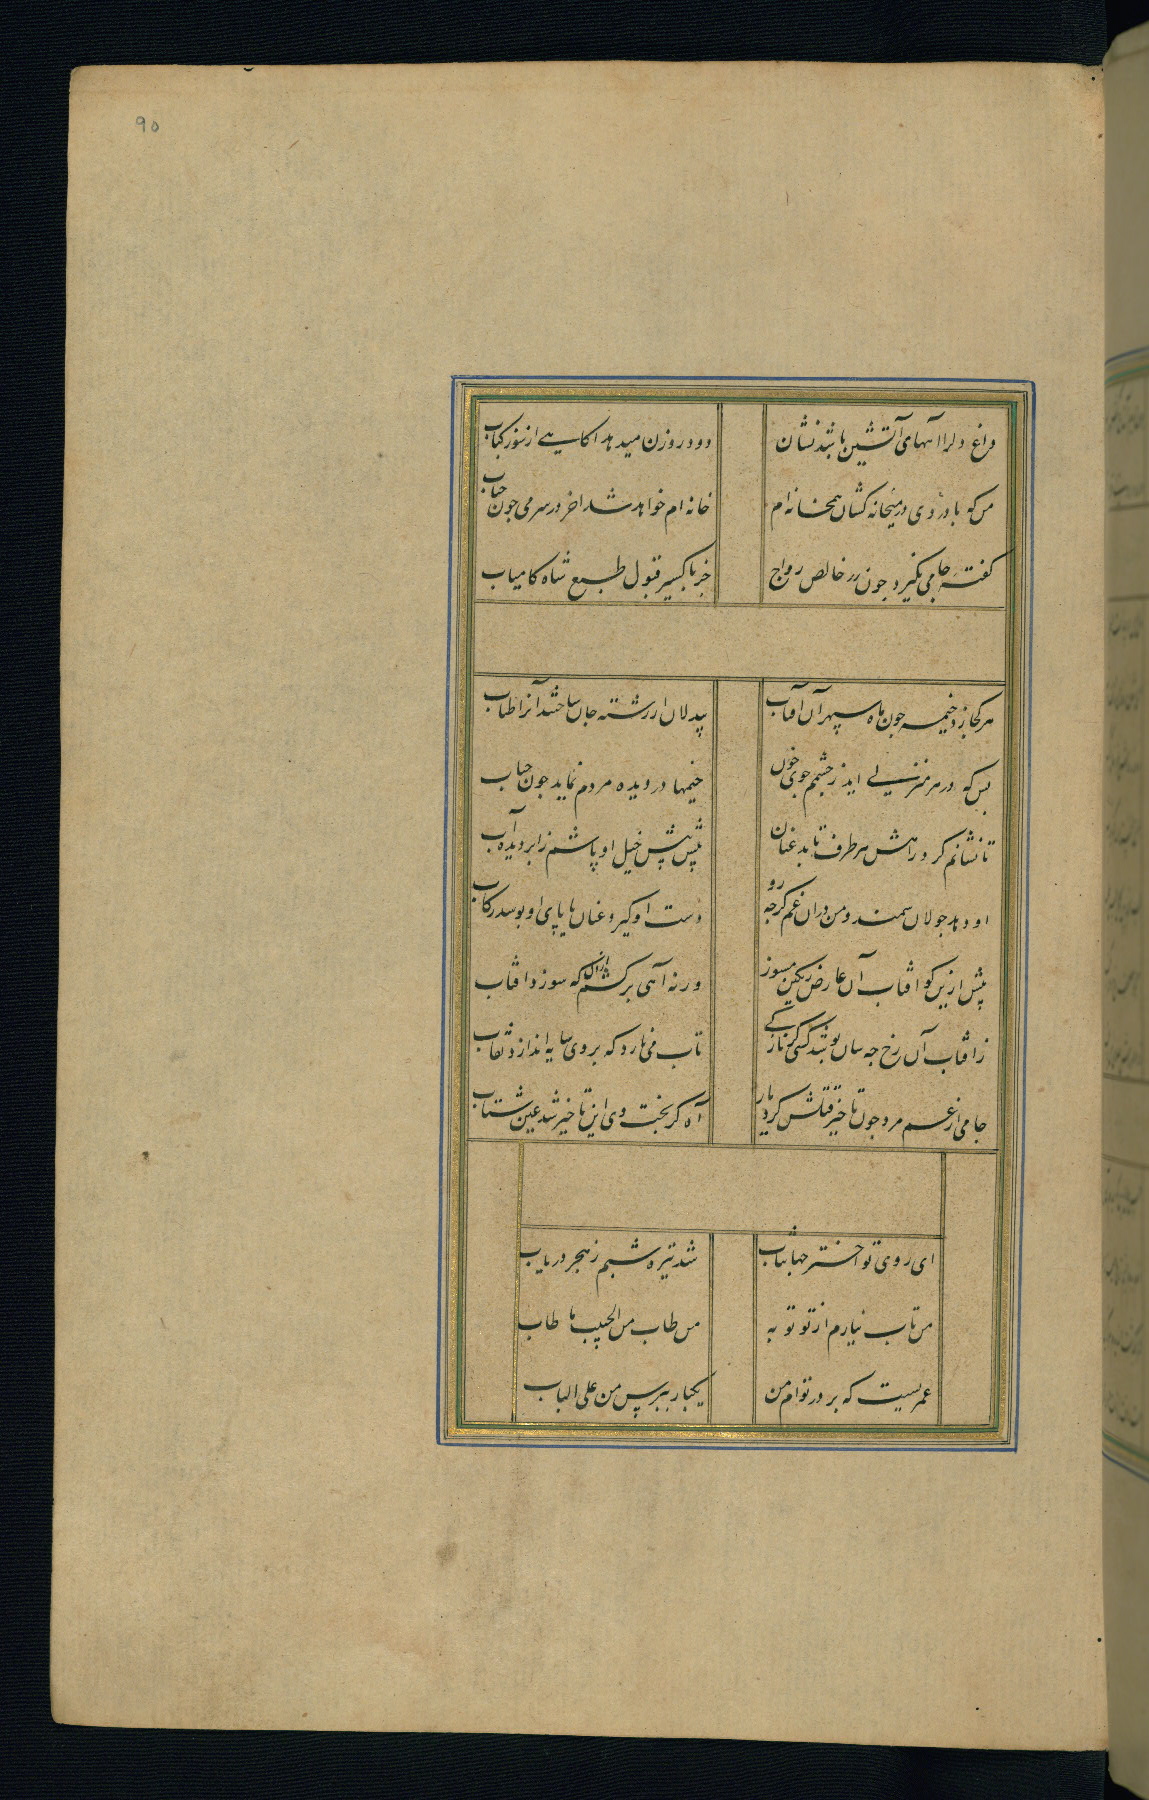 ۹۵
داغ دلرا آههای آتشین باشد نشان
دود روزن میدهد آکاهیی از سوز کباب
من که با دردی در میخانه کشان همخانه ام
خانه ام خواهد شد اخر در سر می جون حباب
کفته جامی نکیرد جون زر خالص رواج
جز باکسیر قبول طبع شاه کامیاب
هر کجا زد خیمه جون ماه سپهر آن آفتاب
بیدلان از رشته جان ساختند آنرا طناب
بس که در هر منزلی اید ز جشمم جوی خون
خیمها در دیده مردم نماید جون حباب
تا نشانم کرد راهش هر طرف تابد عنان
پیش پیش خیل او پاشم ز ابر دیده آب
او دهد جولان سمند و من در آن غم کرجه رو
دست او کیرد عنان یا پای او بوسد رکاب
پیش ازین کو افتاب آن عارض رنکین مسوز
ورنه آهی برکشم از دل که سوزد افتاب
ز افتاب آن رخ جه سان پوشد کسی کز نازکی
تاب می نارد که بر وی سایه اندازد نقاب
جامی از غم مرد جون تاخیر قتلش کرد یار
آه کز بخت وی این تاخیر شد عین شتاب
ای روی تو اختر جهانتاب
شد تیره شبم ز هجر دریاب
من تاب نیارم از تو توبه
من طاب من الحبیب ما طاب
عمریست که بر در توام من
یکبار بپرس من علی الباب